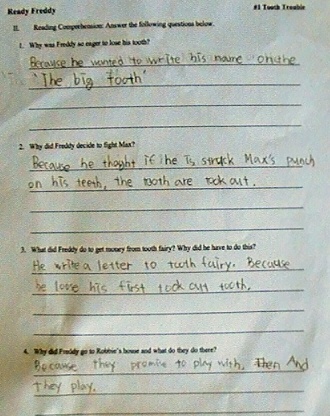 Ready Freddy #1 Tooth Trouble
II. Reading Comprehension: Answer the following questions below.
1. Why was Freddy so eager to lose his tooth?
Because he wanted to write his name on the
'The big tooth'
2. Why did Freddy decide to fight Max?
Because he thoght if he is struck Max's punch
on his teeth, the tooth are took out.
3. What did Freddy do to get money from tooth fairy? Why did he have to do this?
He write a letter to tooth fairy. Because
he lose his first took out tooth.
4. Why did Freddy go to Robbie's house and what do they do there?
Because they promise to play with. Then And
they play.